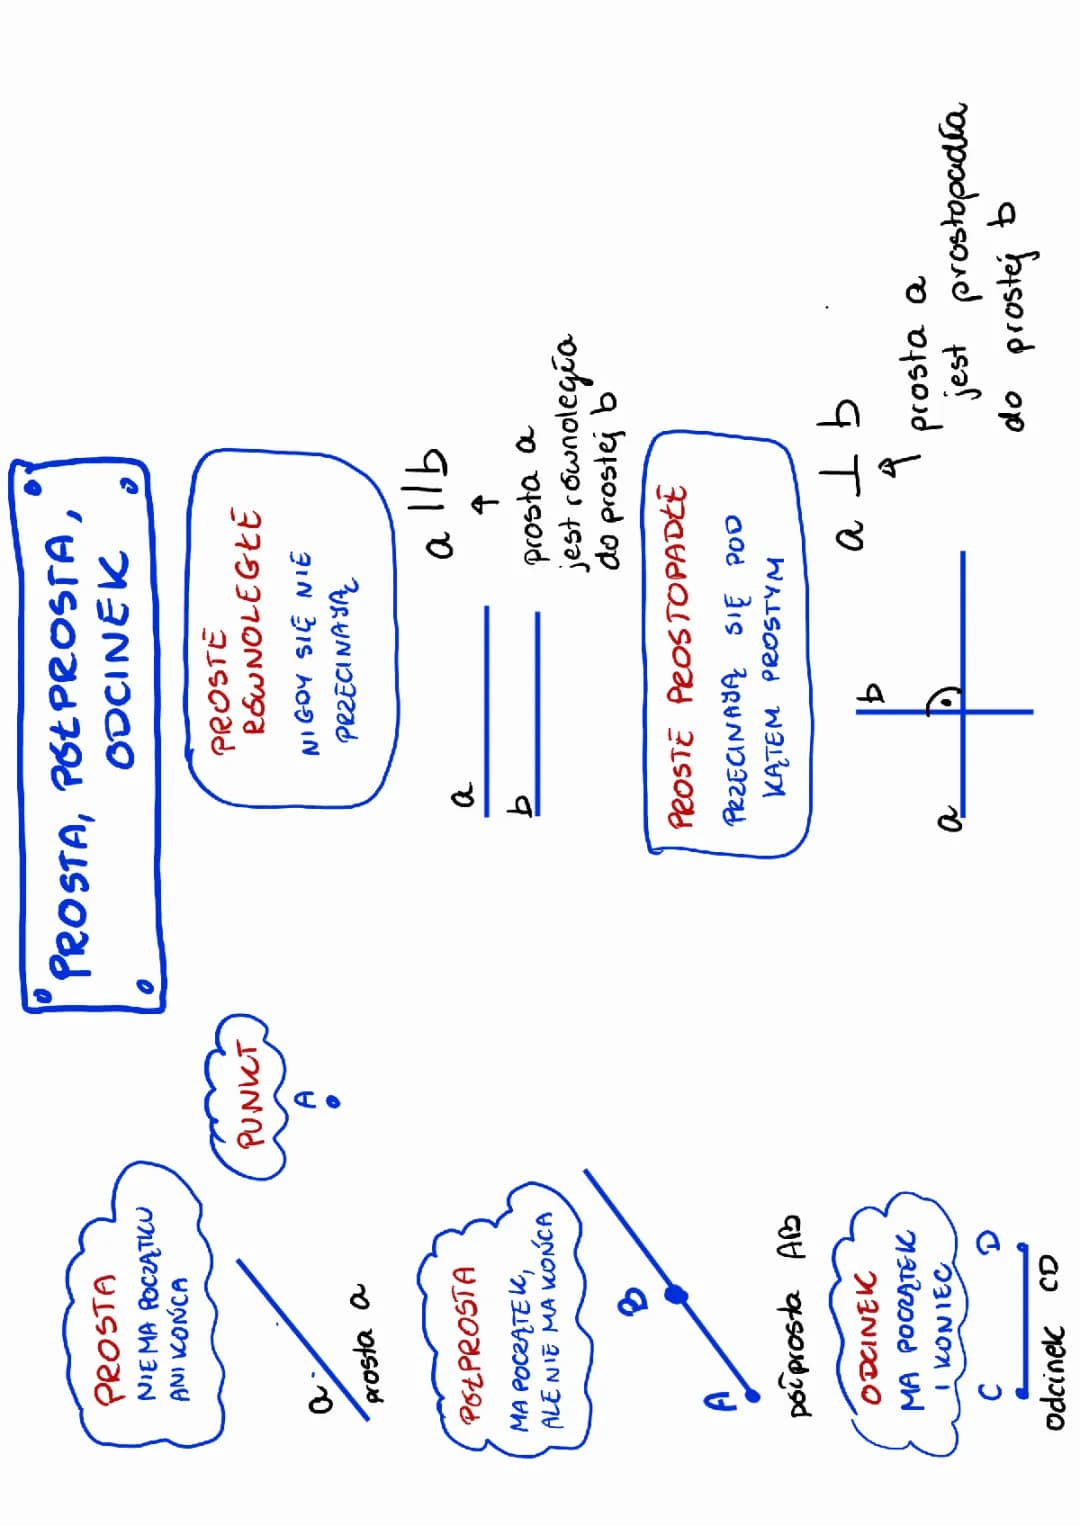 PROSTA, PÓŁPROSTA,
ODCINEK
PROSTA
NIE MA POCZĄTKU
ANI KOŃCA
a
prosta a
PUNKT
A
PÓŁPROSTA
MA POCZĄTEK,
ALE NIE MA KOŃCA
A
B
półprosta AB
ODCINEK
MA POCZĄTEK
I KONIEC
C
D
odcinek CD
PROSTE
RÓWNOLEGŁE
NIGDY SIĘ NIE
PRZECINAJĄ
a
b
a || b
prosta a
jest równoległa
do prostej b
PROSTE PROSTOPADŁE
PRZECINAJĄ SIĘ POD
KĄTEM PROSTYM
a
b
a ⊥ b
prosta a
jest prostopadła
do prostej b